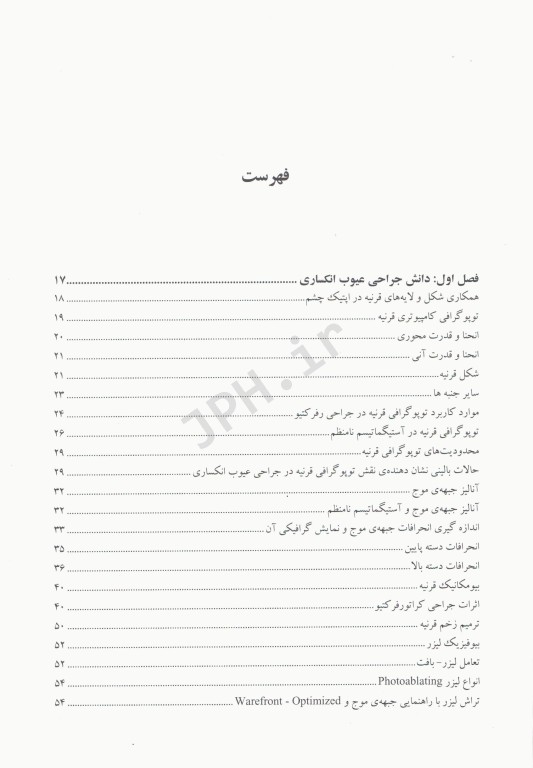 فهرست
فصل اول: دانش جراحی عیوب انکساری ۱۷
همکاری شکل و لایه‌های قرنیه در اپتیک چشم ۱۸
توپوگرافی کامپیوتری قرنیه ۱۹
انحنا و قدرت محوری ۲۰
انحنا و قدرت آنی ۲۱
شکل قرنیه ۲۱
سایر جنبه ها ۲۳
موارد کاربرد توپوگرافی قرنیه در جراحی رفرکتیو ۲۴
توپوگرافی قرنیه در آستیگماتیسم نامنظم ۲۶
محدودیت‌های توپوگرافی قرنیه ۲۹
حالات بالینی نشان دهنده‌ی نقش توپوگرافی قرنیه در جراحی عیوب انکساری ۲۹
آنالیز جبهه‌ی موج ۳۲
آنالیز جبهه‌ی موج و آستیگماتیسم نامنظم ۳۲
اندازه گیری انحرافات جبهه‌ی موج و نمایش گرافیکی آن ۳۳
انحرافات دسته پایین ۳۵
انحرافات دسته بالا ۳۶
بیومکانیک قرنیه ۴۰
اثرات جراحی کراتورفرکتیو ۴۰
ترمیم زخم قرنیه ۵۰
بیوفیزیک لیزر ۵۲
تعامل لیزر- بافت ۵۲
انواع لیزر Photoablating ۵۴
تراش لیزر با راهنمایی جبهه‌ی موج و Warefront - Optimized ۵۴
JPH.ir